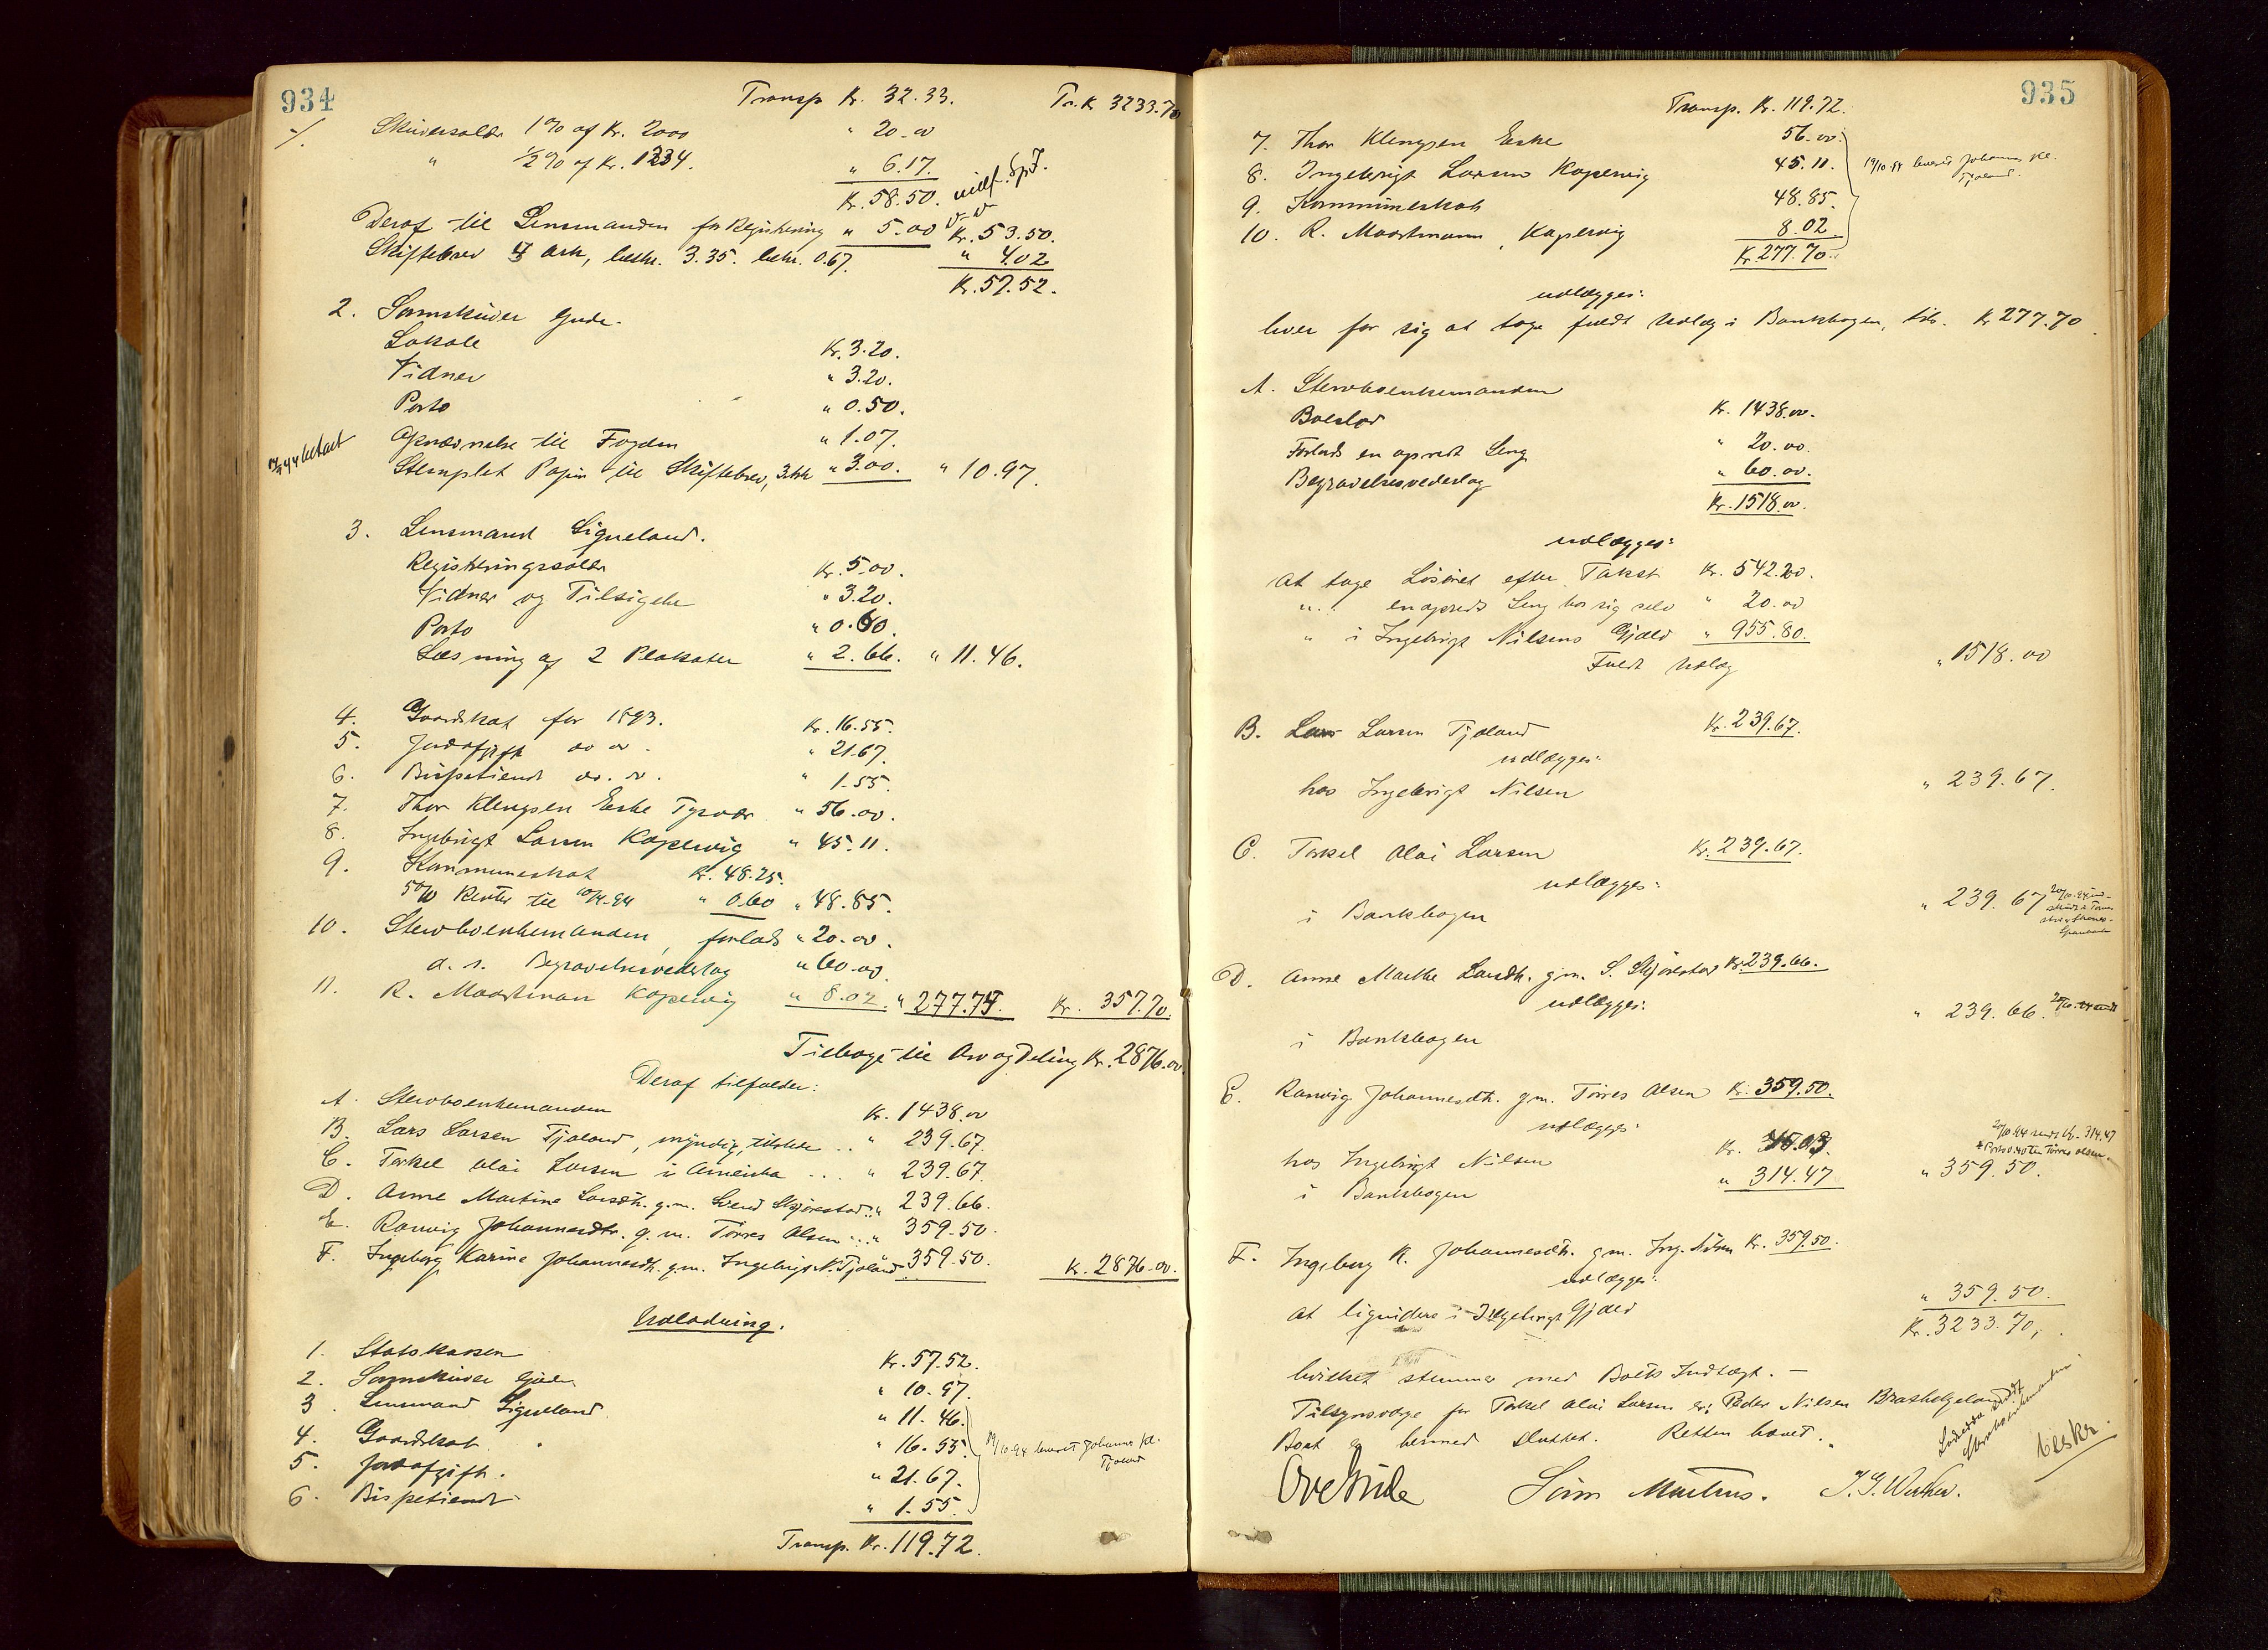 934
Transp Kr. 32.33. Tr. Kr 3233.70
./. Skiversalær 1% af Kr. 2000 " 20-00
" ½% af Kr. 1234. " 6.17.
Kr. 58.50.
Deraf til Lensmanden for Registrering " 5.00 Kr. 53.50.
Skiftebrev ark, beskr. 3.35. bekr. 0.67. " 4.02
Kr. 57.52.
2. Sorenskriver Gude.
Lokale Kr. 3.20.
Vidner " 3.20.
Porto " 0.50.
Opnævnelse til Fogden " 1.07.
Stemplet Papir til Skiftebrev, 3 Ark " 3.00. " 10.97.
3. Lensmand Signeland.
Registreringssalær Kr. 5.00.
Vidner og Tilsigelse " 3.20.
Porto " 0.60.
Læsning af 2 Plakater " 2.66. " 11.46.
4. Gaardskat for 1893. Kr. 16.55.
5. Jordafgift do do. " 21.67.
6. Bispetiende do. do. " 1.55.
7. Thor Klengsen Eske Tysvær " 56.00.
8. Ingebrigt Larsen Kopervig " 45.11.
9. Kommuneskat Kr. 48.25.
5% Renter til " 0.60 " 48.85.
10. Stervboenkemanden, forlods " 20.00.
d. s. Begravelsesvederlag " 60.00
11. R. Maastmann Kopervig " 8.02. " 277.75. Kr. 357.70.
Tilbage til Arv og Deling Kr. 2876.00
Deraf tilfalder:
A. Stervboenkemanden Kr. 1438.00
B. Lars Larsen Tjøland, myndig, tilstede .. " 239.67.
C. Torkel Olai Larsen i Amerika ... " 239.67.
D. Anne Martine Larsdtr. g.m. Svend Skjørestad .. " 239.66.
E. Ranvig Johannesdtr. g.m. Tørres Olsen ... " 359.50.
F. Ingeborg Karine Johannesdtr. g.m. Ingebrigt N. Tjøland .. 359.50. Kr. 2876.00.
Udlodning.
1. Statskassen Kr. 57.52.
2. Sorenskriver Gude " 10.97.
3. Lensmand Signeland " 11.46.
4. Gaardskat " 16.55.
19/10.94 leveret Johannes Kl. Tjøland
5. Jordafgift. " 21.67.
6. Bispetiende " 1.55.
Transp. Kr. 119.72.
935
Transp. Kr. 119.72.
7. Thor Klengsen Eske 56.00.
8. Ingebrigt Larsen Kopervig 45.11.
19/10.94 leveret Johannes Kl. Tjøland.
9. Kommuneskat 48.85.
10. R. Maastmann, Kopervig 8.02
Kr. 277.70.
udlægges:
hver for sig at tage fuldt Udlæg i Bankbogen, tils. Kr 277.70
A. Stervboenkemanden
Boeslod Kr. 1438.00.
Forlods en opredt Seng " 20.00.
Begravelsesvederlag " 60.00.
Kr. 1518.00.
udlægges:
at tage Løsøret efter Takst Kr. 542.20.
" en opredt Seng hos sig selv " 20.00
" i Ingebrigt Nilsens Gjæld " 955.80.
Fuldt Udlæg " 1518.00
B. Lars Larsen Tjøland Kr. 239.67.
udlægges:
hos Ingebrigt Nilsen " 239.67.
C. Torkel Olai Larsen Kr. 239.67.
udlægges:
i Bankbogen " 239.67
D. Anne Marthe Larsdtr. g.m. S. Skjørestad Kr. 239.66.
udlægges:
i Bankbogen " 239.66.
E. Ranvig Johannesdtr. g.m. Tørres Olsen Kr. 359.50.
udlægges:
20/10.94 sendt Kr. 314.47
Porto 0.40 til Tørres Olsen.
hos Ingebrigt Nilsen Kr. 45.03.
i Bankbogen " 314.47 " 359.50.
F. Ingeborg K. Johannesdtr. g.m. Ing. Nilsen Kr. 359.50.
udlægges:
at liquidere i Ingebrigts Gjæld " 359.50.
Kr. 3233.70,
hvilket stemmer med Boets Indtægt. —
Tilsynsværge for Torkel Olai Larsen er: Peder Nilsen
Boet er hermed sluttet. Retten hævet.
beskr.
Ove Gude Sørn Martens. J. G. Wather.